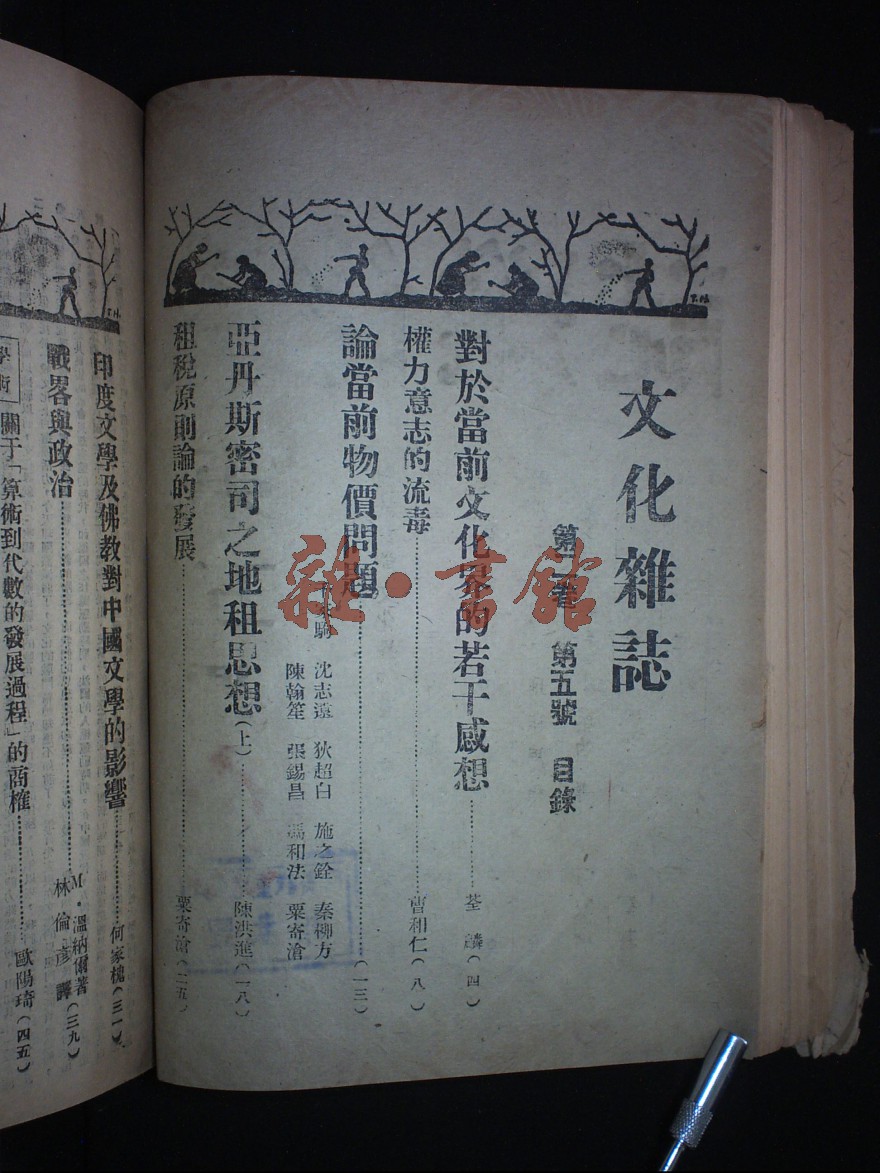 文化雜誌
第二卷 第五號 目錄
對於當前文化界的若干感想……荃麟(四)
權力意志的流毒……曹和仁(八)
論當前物價問題……(一三)
駒 沈志遠 狄超白 施之銓 秦柳方
陳翰笙 張錫昌 馮和法 粟寄滄
亞丹斯密司之地租思想(上)……陳洪進(一八)
租稅原則論的發展……粟寄滄(二五)
印度文學及佛教對中國文學的影響……何家槐(三一)
戰畧與政治……M·溫納爾著 林倫彥譯(三九)
學術 關于「算術到代數的發展過程」的商榷……歐陽琦(四五)
雜·書館